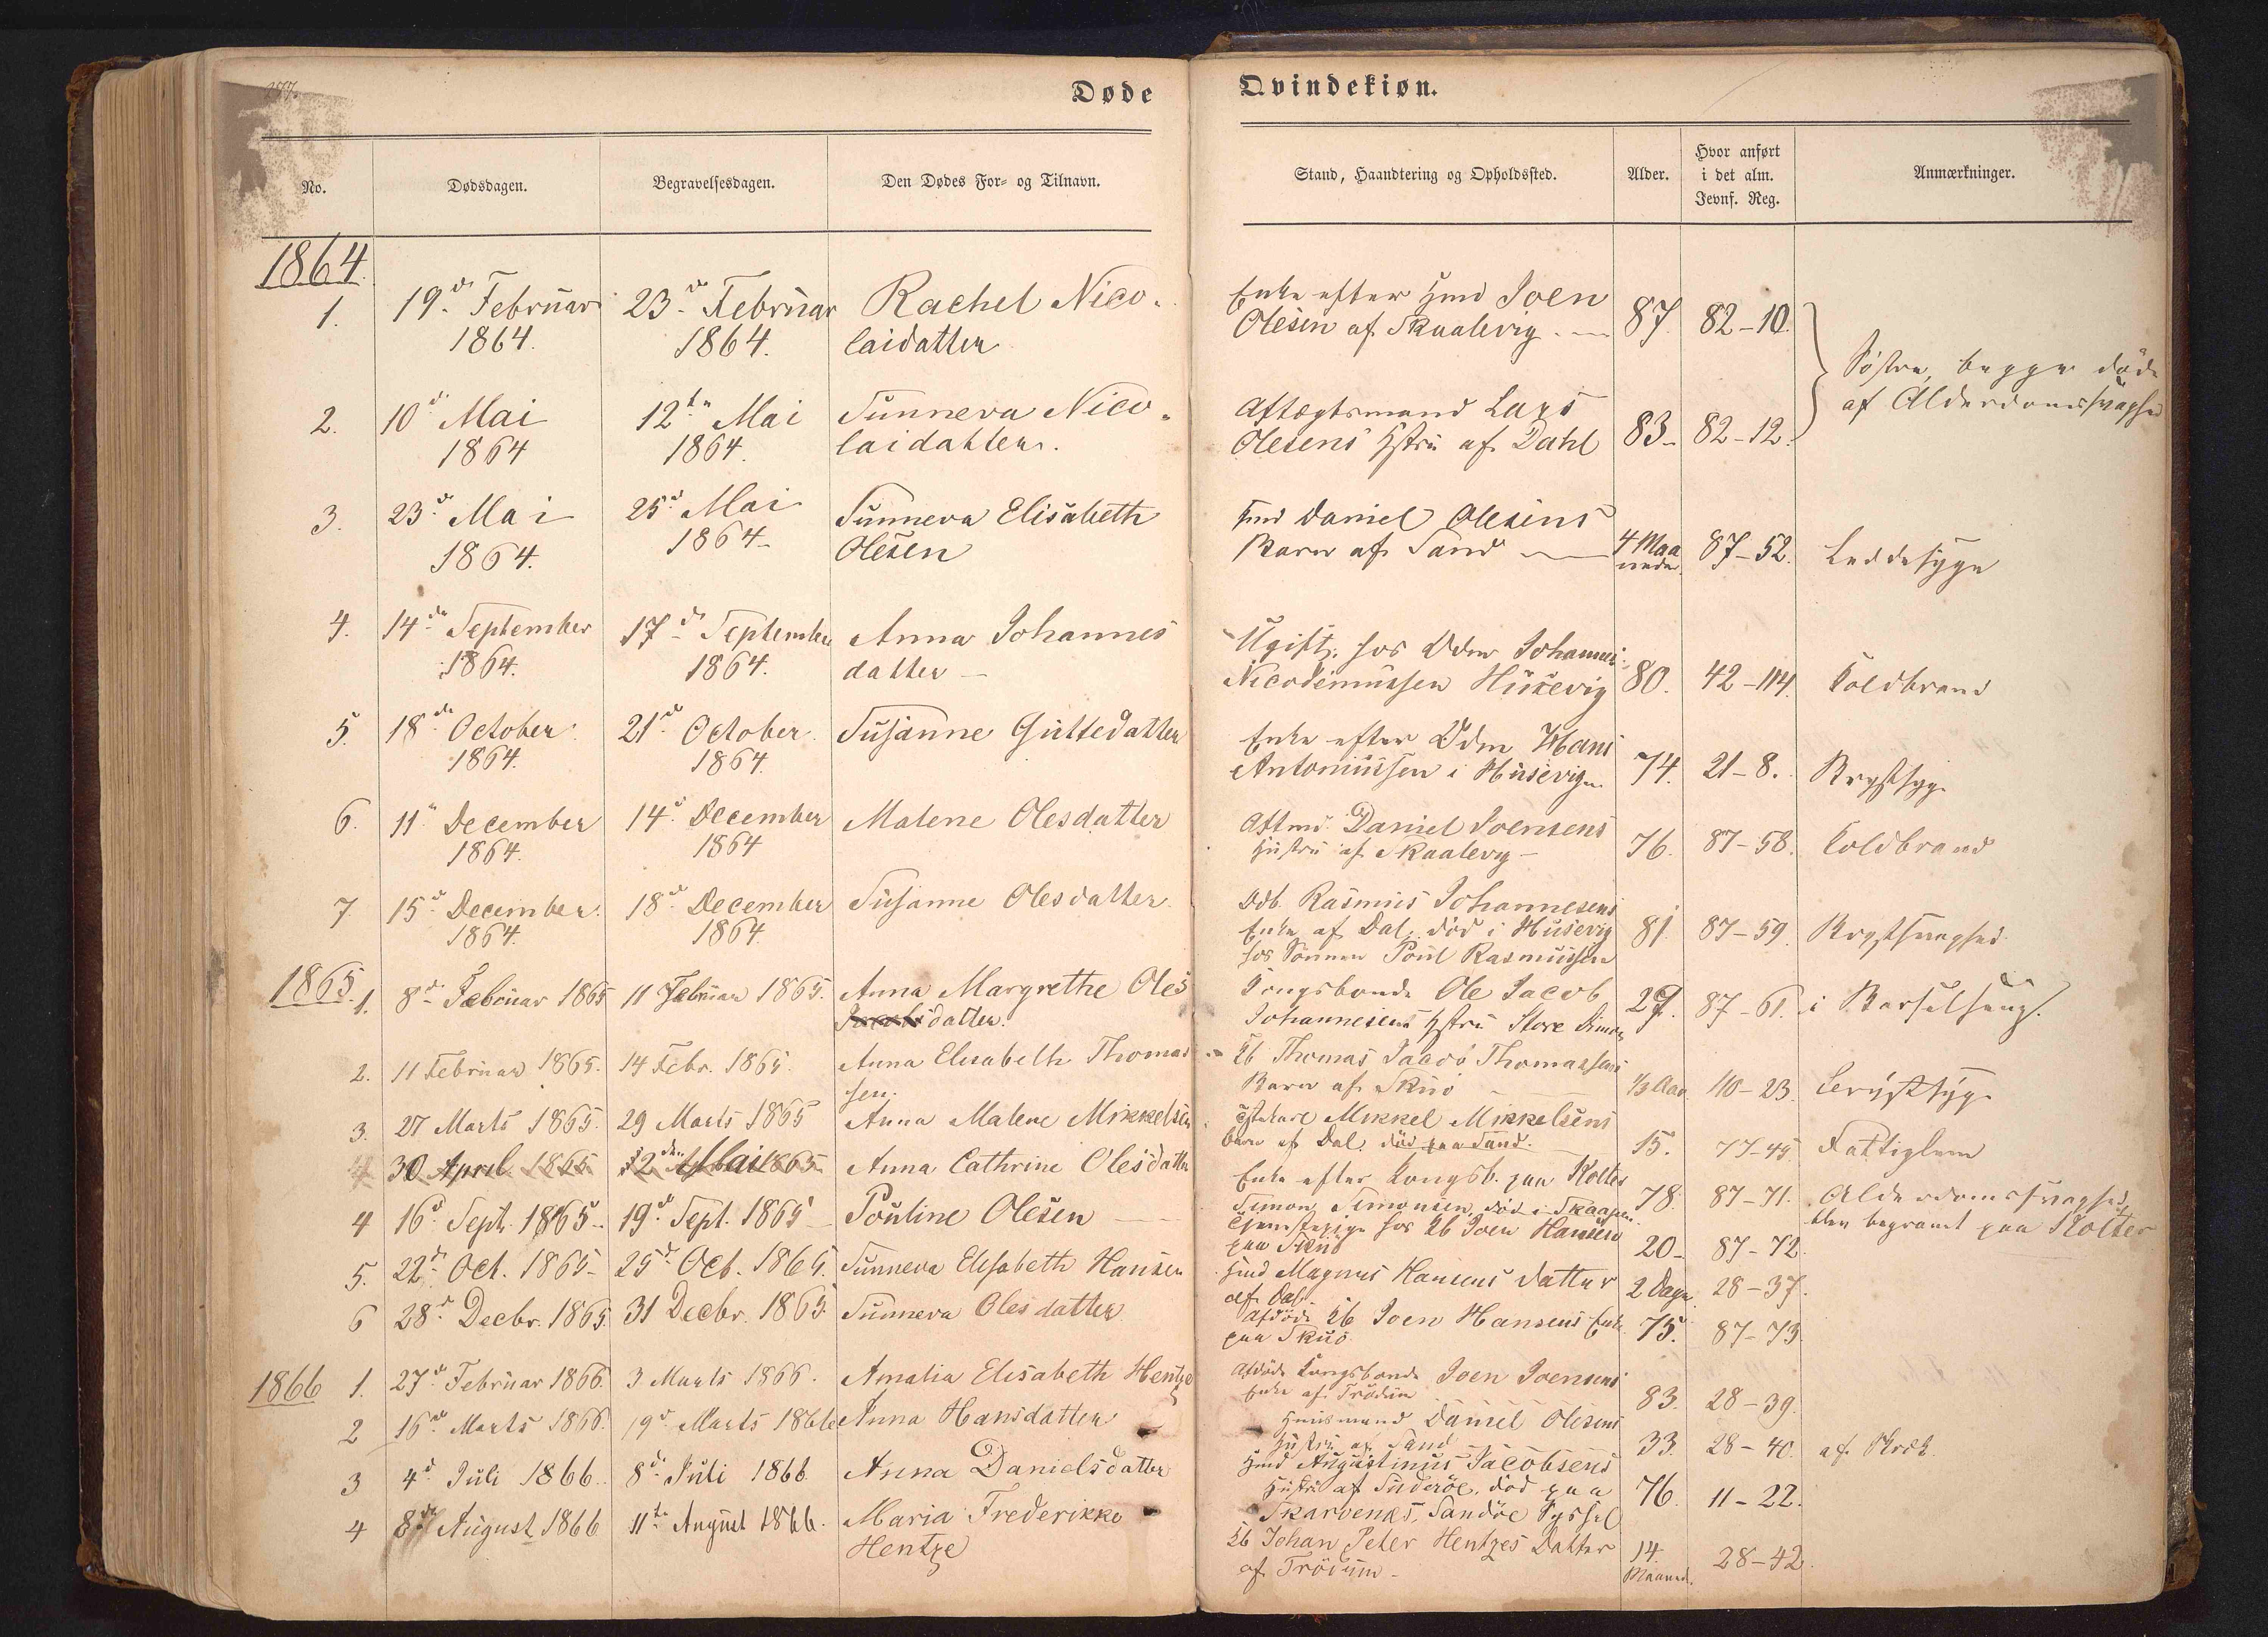 Døde
Qvindekiøn.
No.
Dødsdagen.
Begravelsesdagen.
Den Dødes For- og Tilnavn.
Stand, Haandtering og Opholdssted.
Alder.
Hvor anført
i det alm.
Jevnf. Reg.
Anmærkninger.
1864.
1. 19d Februar 23d Februar Rachel Nico- Enke efter Hmd Joen 87. 82-10.
1864. 1864. laidatter Olesen af Skaalevig.
Søstre, begge døde
af Alderdomssvaghed
2. 10d Mai 12te Mai Sunneva Nico- Aftægtsmand Lars 83- 82-12.
1864 1864. laidatter. Olesens Hstru af Dahl
3. 23d Mai 25d Mai Sunneva Elisabeth Hmd Daniel Olesens 4 Maa 87-52. Leddesyge
1864. 1864- Olesen Barn af Sand neder.
4. 14de September 17d September Anna Johannes Ugift, hos Odm Johannes 80. 42-114. Koldbrand
1864. 1864. datter - Nicodemussen Husevig
5. 18de October 21d October Susanne Guttedatter Enke efter Odm Hans 74. 21-8. Brystsyge
1864. 1864. Antoniussen i Husevig
6. 11te December 14d December Malene Olesdatter Aftmd Daniel Joensens 76. 87-58. Koldbrand
1864. 1864 Hustru af Skaalevig -
7. 15d December 18d December Susanne Olesdatter Odb. Rasmus Johannesens 81 87-59 Brystsvaghed
1864. 1864. Enke af Dal, død i Husevig
hos Sønnen Poul Rasmussen
1865. 1. 8d Februar 1865 11 Februar 1865. Anna Margrethe Oles Kongsbonde Ole Jacob 29. 87-61. i Barselseng.
datter. Johannesens Hstru Store Dimon
2. 11 Februar 1865. 14 Febr. 1865. Anna Elisabeth Thomas- Kb Thomas Thomassens 1/3 Aar 10-23.
sen. Barn af Skuø
3. 27 Marts 1865. 29 Marts 1865 Anna Malene Mikkelsen Mikkel Mikkelsens 15. 77-45 Fattiglem
Barn af Dal, død paa Sand.
4 30 April 1865 12den Mai 1865 Anna Cathrine Olesdatter Enke efter Kongsb. paa Kolter 78. 87-71. Alderdomssvaghed,
Simon Simonsen, død i blev begravet paa Kolter
4 16d Sept. 1865- 19d Sept. 1865 - Pouline Olesen Tjenestepige hos Kb Joen Hansen 20- 87-72.
paa Skuø
5. 22de Oct. 1865- 25d Oct. 1865. Sunneva Elisabeth Hansen Hmd Magnus Hansens Datter 2 Dage 28-37.
af Dal
6 28d Decbr. 1865. 31 Decbr. 1865 Sunneva Olesdatter Afdøde Kb Joen Hansens Enke 75. 87-73.
paa Skuø
1866 1. 27d Februar 1866. 3 Marts 1866. Amalia Elisabeth Hentze Afdøde Kongsbonde Joen Joensens 83. 28-39.
Enke af Trødum
2 16d Marts 1866. 19d Marts 1866 Anna Hansdatter Huusmand Daniel Olesens 33. 28-40
Hustru af Sand
3 4d Juli 1866. 8d Juli 1866 Anna Danielsdatter Hmd Augustinus Jacobsens 76. 11-22.
Hustru af Suderøe, død paa
Skarvenæs, Sandøe Syssel
4 8d August 1866 11te August 1866. Maria Frederikke Kb Johan Peter Hentzes Datter 14. 28-42.
Hentze af Trødum- Maaned.